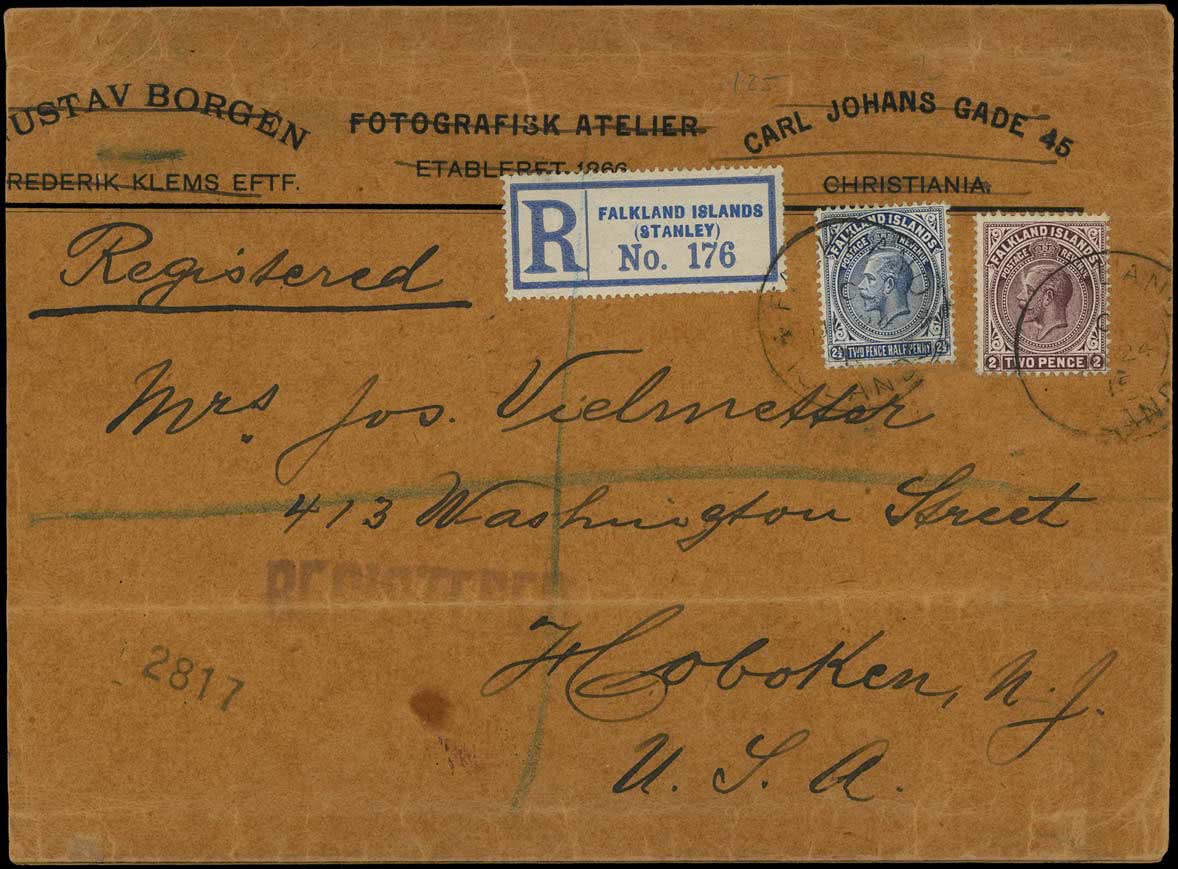 USTAV BORGEN
REDERIK KLEMS EFTF.
FOTOGRAFISK ATELIER
ETABLERET 1866
CARL JOHANS GADE 45
CHRISTIANIA.
125
R
FALKLAND ISLANDS
(STANLEY)
No. 176
FALKLAND ISLANDS
POSTAGE REVENUE
2½ TWO PENCE HALF PENNY 2½
FALKLAND ISLANDS
POSTAGE REVENUE
2 TWO PENCE 2
24
Registered
Mrs. Jos. Vielmetter
413 Washington Street
REGISTERED
Hoboken, N. J.
U. S. A.
2817